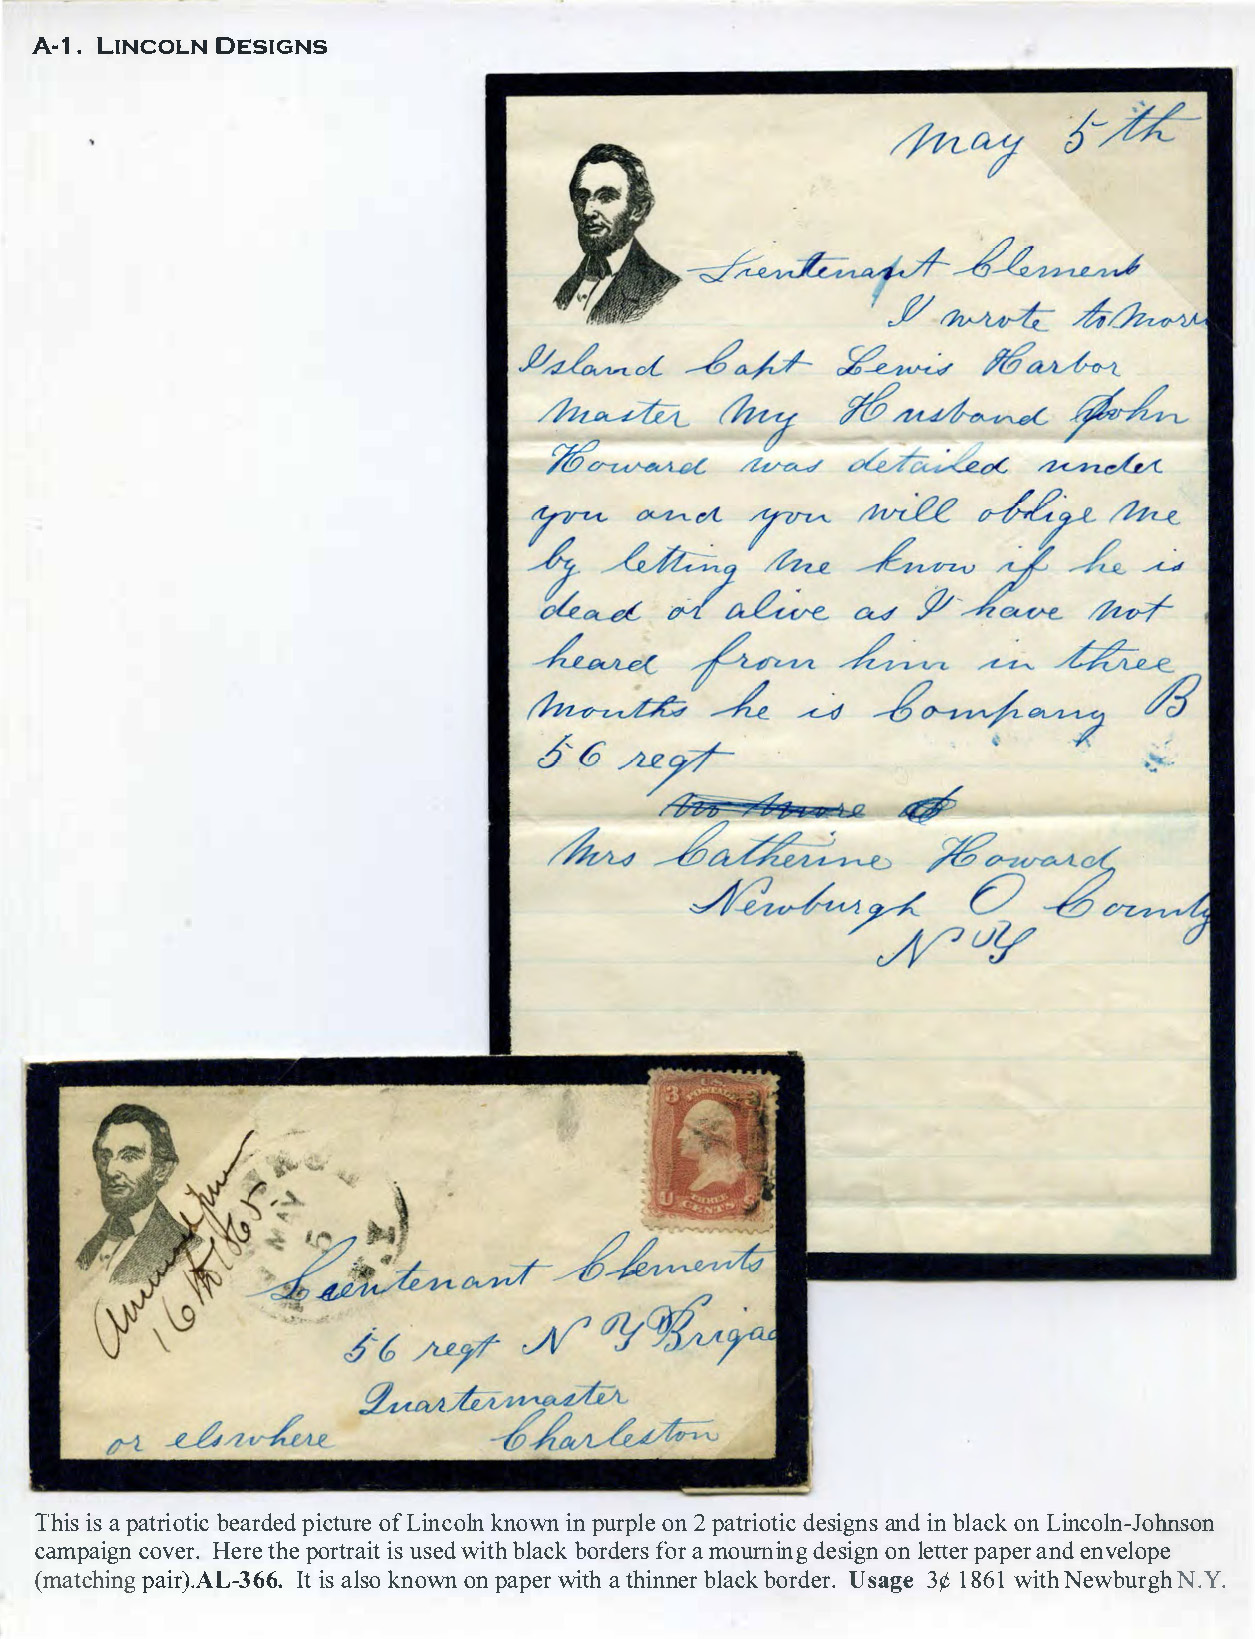 A-1. LINCOLN DESIGNS
May 5th
Lieutenant Clement
I wrote to Morri
Island Capt Lewis Harbor
Master My Husband John
Howard was detailed under
you and you will oblige me
by letting me know if he is
dead or alive as I have not
heard from him in three
months he is Company B
56 regt
no more
Mrs Catherine Howard
Newburgh O County
N Y
3 3
U.S. POSTAGE
U THREE CENTS S
MAY
5
N.Y.
16th 1865
Lieutenant Clements
56 regt N Y Brigad
Quartermaster
or elswhere Charleston
This is a patriotic bearded picture of Lincoln known in purple on 2 patriotic designs and in black on Lincoln-Johnson
campaign cover. Here the portrait is used with black borders for a mourning design on letter paper and envelope
(matching pair).AL-366. It is also known on paper with a thinner black border. Usage 3¢ 1861 with Newburgh N.Y.